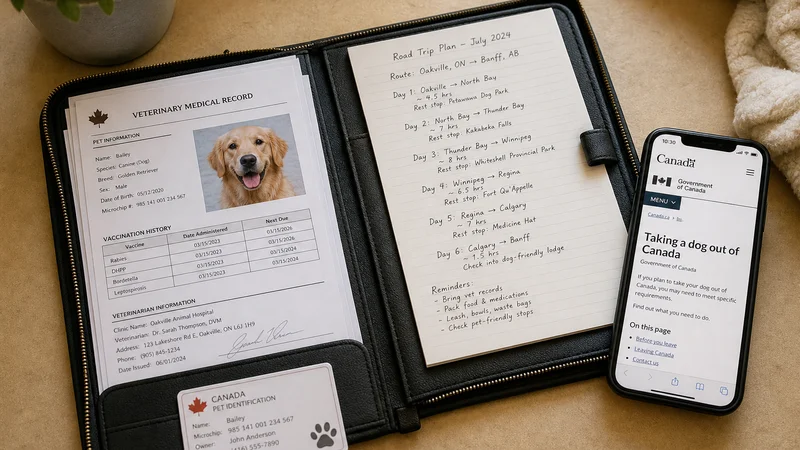 VETERINARY MEDICAL RECORD
PET INFORMATION
Name: Bailey
Species: Canine (Dog)
Breed: Golden Retriever
Sex: Male
Date of Birth: 05/12/2020
Microchip #: 985 141 001 234 567
VACCINATION HISTORY
Vaccine Date Administered Next Due
Rabies 03/15/2023 03/15/2026
DHPP 03/15/2023 03/15/2026
Bordetella 03/15/2023 03/15/2024
Leptospirosis 03/15/2023 03/15/2024
VETERINARIAN INFORMATION
Clinic Name: Oakville Animal Hospital
Veterinarian: Dr. Sarah Thompson, DVM
Address: 123 Lakeshore Rd E, Oakville, ON L6J 1H9
Phone: (905) 845-1234
Date Issued: 06/01/2024
CANADA
PET IDENTIFICATION
Name: Bailey
Microchip: 985 141 001 234 567
Owner: John Anderson
(416) 555-7890
Road Trip Plan – July 2024
Route: Oakville, ON → Banff, AB
Day 1: Oakville → North Bay
~ 4.5 hrs
Rest stop: Petawawa Dog Park
Day 2: North Bay → Thunder Bay
~ 7 hrs
Rest stop: Kakabeka Falls
Day 3: Thunder Bay → Winnipeg
~ 8 hrs
Rest stop: Whiteshell Provincial Park
Day 4: Winnipeg → Regina
~ 6.5 hrs
Rest stop: Fort Qu'Appelle
Day 5: Regina → Calgary
~ 7 hrs
Rest stop: Medicine Hat
Day 6: Calgary → Banff
~ 1.5 hrs
Check into dog-friendly lodge
Reminders:
- Bring vet records
- Pack food & medications
- Leash, bowls, waste bags
- Check pet-friendly stops
10:30
Canada
Government
of Canada
MENU
Canada.ca >
Taking a dog out of
Canada
Government of Canada
If you plan to take your dog out of
Canada, you may need to meet specific
requirements.
Find out what you need to do.
On this page
• Before you leave
• Leaving Canada
• Contact us